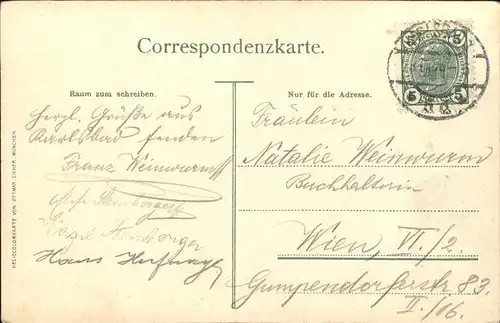 Correspondenzkarte.
Raum zum schreiben.
Nur für die Adresse.
Herzl. Grüße aus
Karlsbad senden
Franz Weinwurm
Sternberger
Hans
Fräulein
Natalie Weinwurm
Buchhalterin
Wien, VI./2.
Gumpendorferstr. 83.
II./16.
HELIOCOLORKARTE VON OTTMAR ZIEHER, MÜNCHEN
5 5
5 5